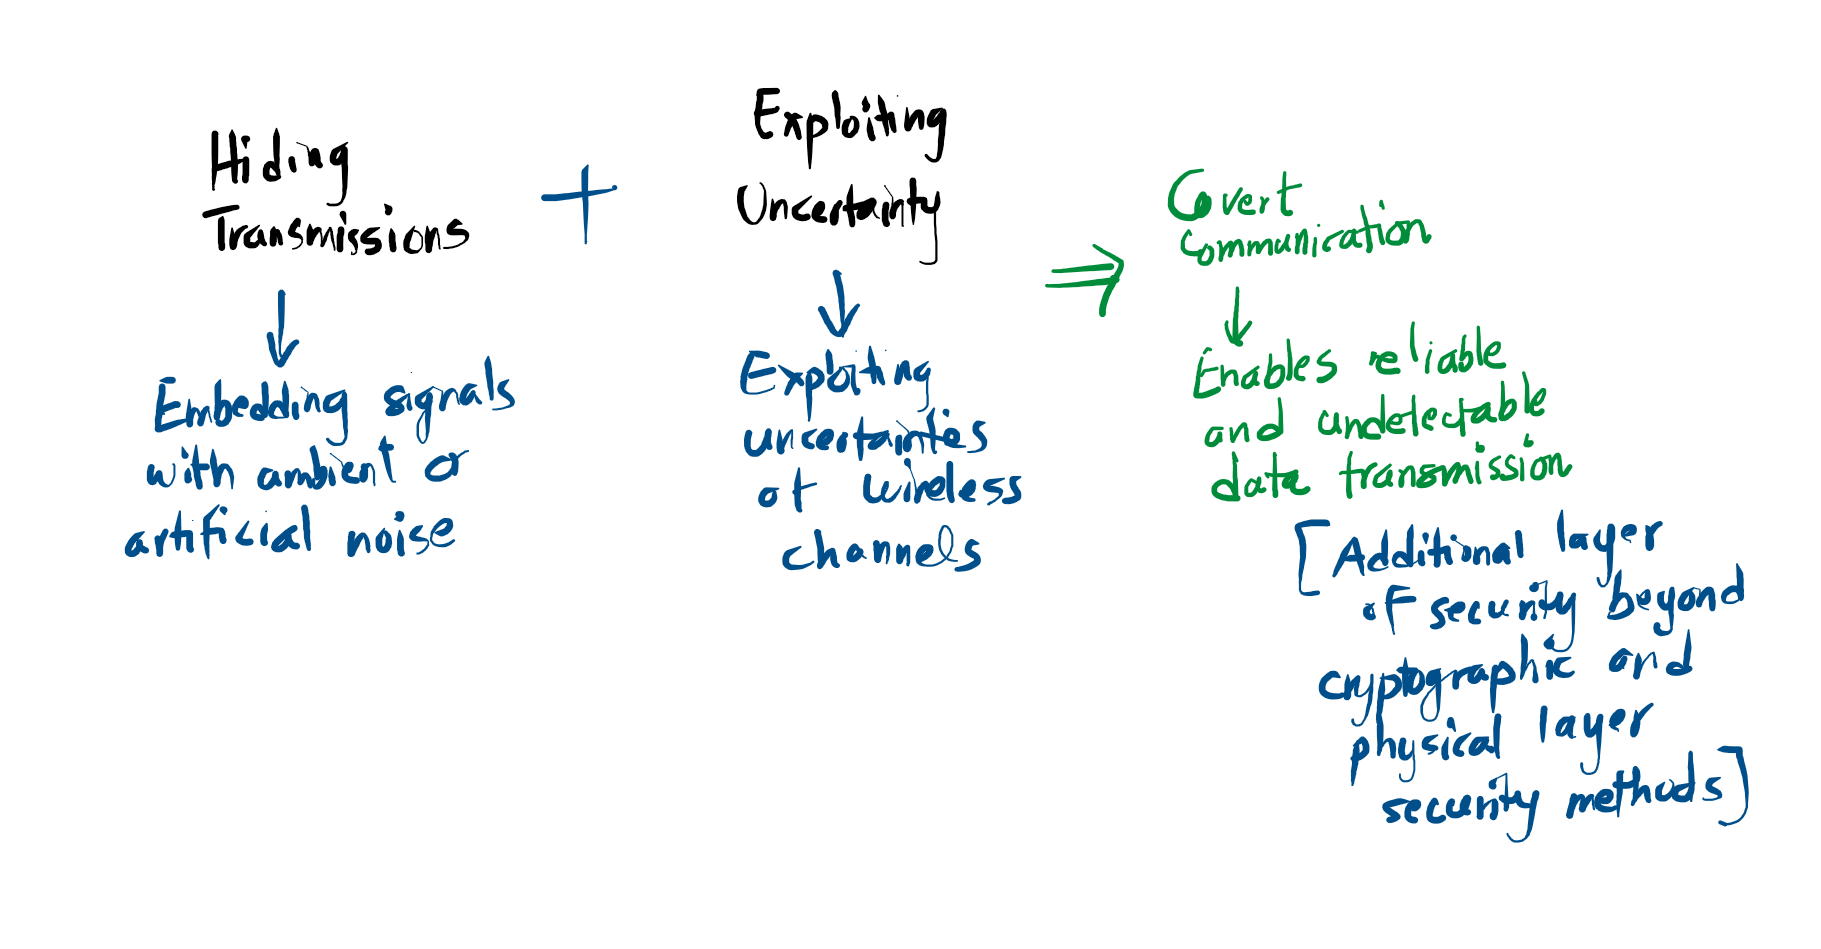 Hiding
Transmissions
+
Exploiting
Uncertainty
⇒
Covert
Communication
↓
Embedding signals
with ambient or
artificial noise
↓
Exploiting
uncertainties
of wireless
channels
↓
Enables reliable
and undetectable
data transmission
[Additional layer
of security beyond
cryptographic and
physical layer
security methods]